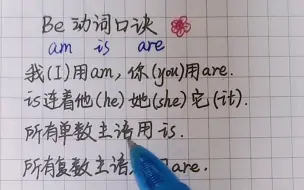 Be动词口诀
am is are
我(I)用am,你(you)用are.
is连着他(he)她(she)它(it).
所有单数主语用is.
所有复数主语用are.